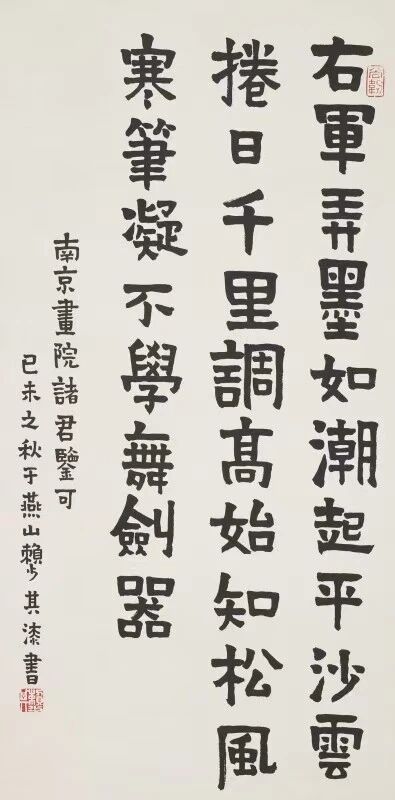 右軍弄墨如潮起平沙雲
捲日千里調高始知松風
寒筆凝不學舞劍器
南京畫院諸君鑒可
己未之秋于燕山賴少其漆書